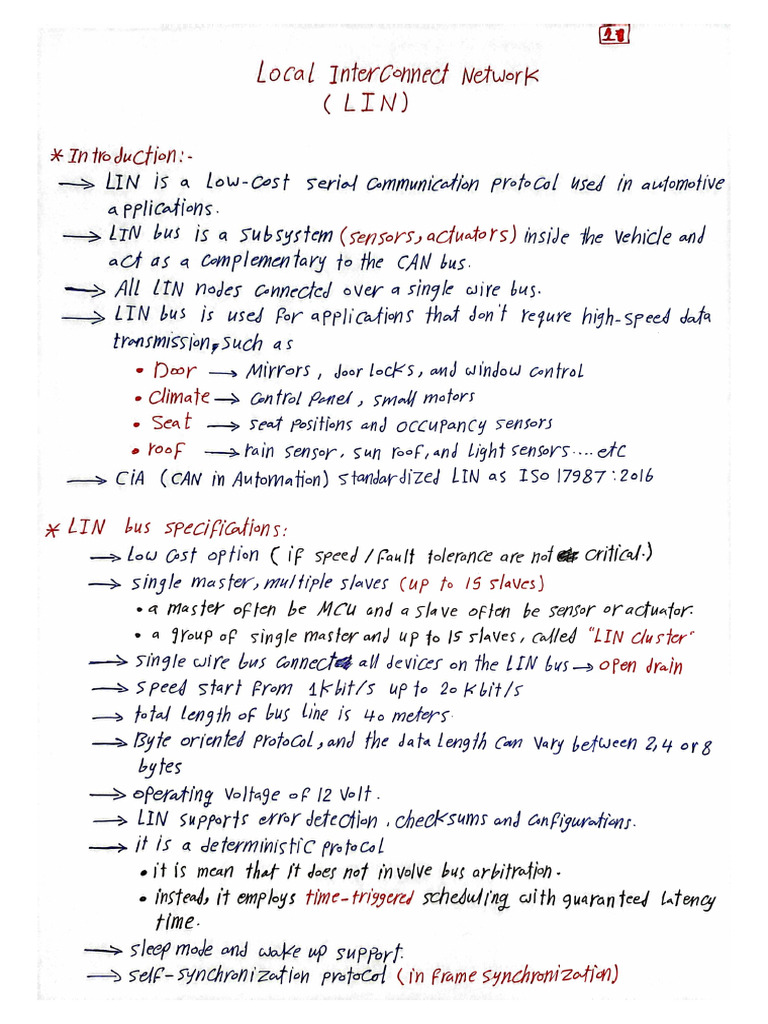 Local InterConnect Network
(LIN)
* Introduction:-
→ LIN is a low-cost serial communication protocol used in automotive
applications.
→ LIN bus is a subsystem (sensors, actuators) inside the vehicle and
act as a complementary to the CAN bus.
→ All LIN nodes connected over a single wire bus.
→ LIN bus is used for applications that don't requre high-speed data
transmission, such as
• Door → Mirrors, door locks, and window control
• Climate → control Panel, small motors
• Seat → seat positions and occupancy sensors
• roof → rain sensor, sun roof, and light sensors....etc
→ CiA (CAN in Automation) standardized LIN as ISO 17987:2016
* LIN bus specifications:
→ low cost option (if speed/fault tolerance are not critical.)
→ single master, multiple slaves (up to 15 slaves)
• a master often be MCU and a slave often be sensor or actuator.
• a group of single master and up to 15 slaves, called "LIN cluster"
→ single wire bus connect all devices on the LIN bus → open drain
→ speed start from 1 kbit/s up to 20 kbit/s
→ total length of bus line is 40 meters.
→ Byte oriented protocol, and the data length can vary between 2, 4 or 8
bytes
→ operating voltage of 12 volt.
→ LIN supports error detection, checksums and configurations.
→ it is a deterministic protocol
• it is mean that it does not involve bus arbitration.
• instead, it employs time-triggered scheduling with guaranteed latency
time.
→ sleep mode and wake up support.
→ self-synchronization protocol (in frame synchronization)